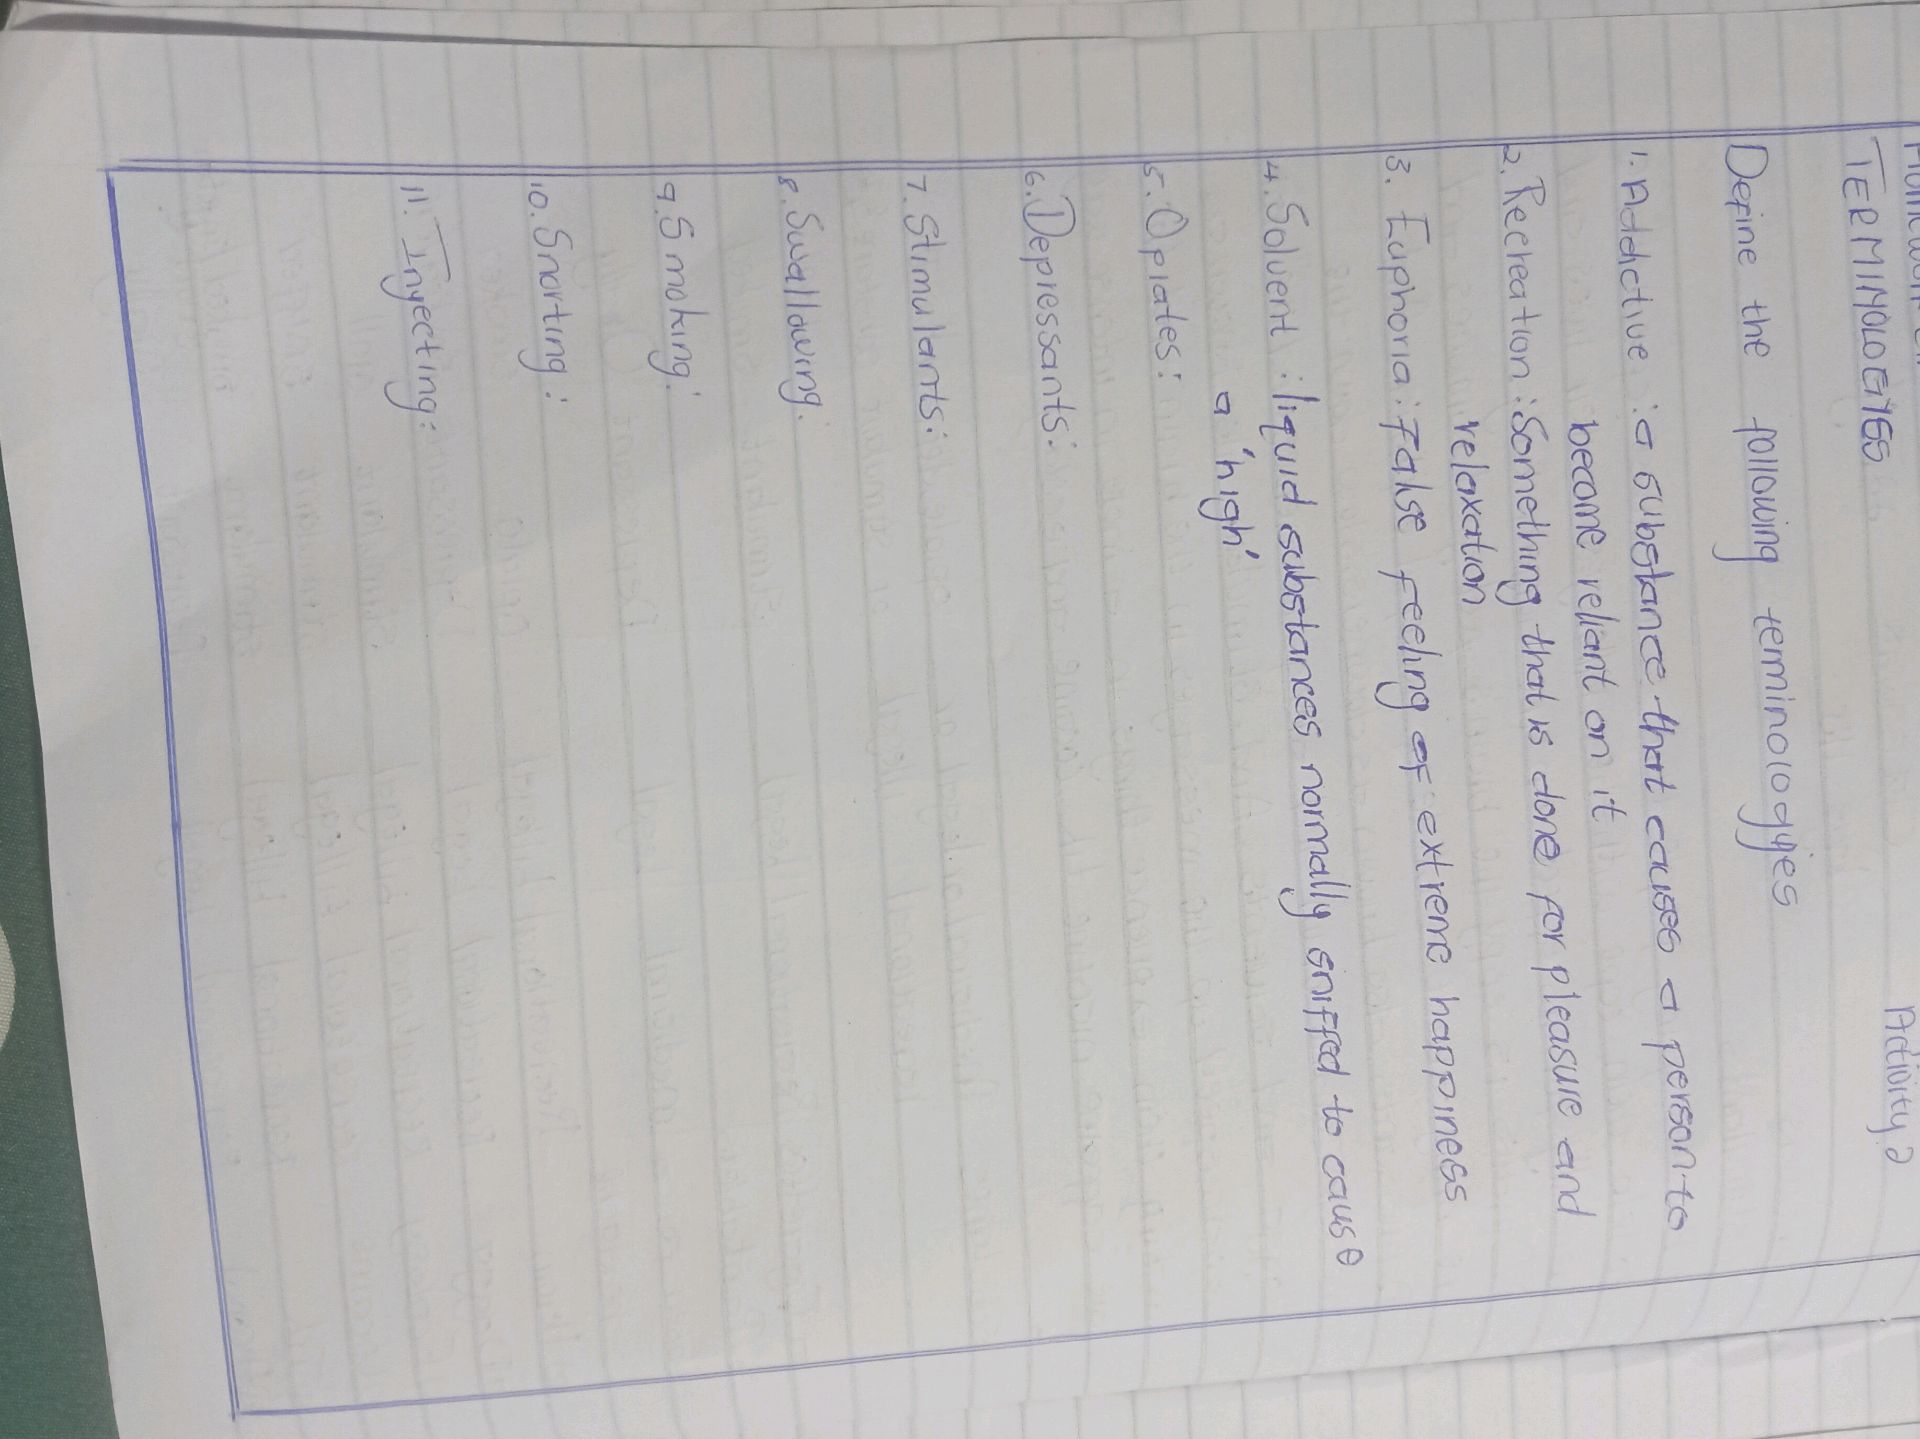 Activity 2
TERMINOLOGIES
Define the following teminologyies
1. Addictive : a substance that causes a person to
become reliant on it
2. Recreation : Something that is done for pleasure and
relaxation
3. Euphoria : False feeling of extreme happiness
4. Solvent : liquid substances normally sniffed to cause
a 'high'
5. Opiates :
6. Depressants :
7. Stimulants :
8. Swallowing :
9. Smoking :
10. Snorting :
11. Injecting :